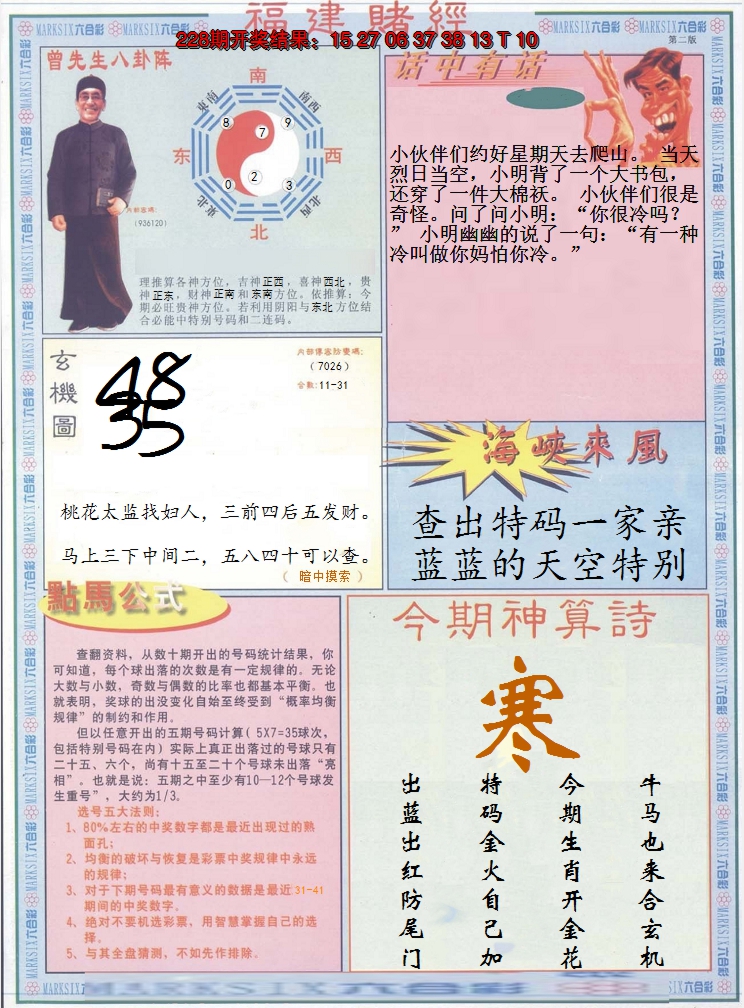 福建賭經
228期开奖结果：15 27 06 37 38 13 T 10
第二版
曾先生八卦阵
南
东南
南西
8
7
9
东
西
0
2
3
东北
北西
北
内部密碼：
（936120）
理推算各神方位，吉神正西，喜神西北，贵
神正东，财神正南和东南方位。依推算：今
期必旺贵神方位。若利用阴阳与东北方位结
合必能中特别号码和二连码。
话中有话
小伙伴们约好星期天去爬山。 当天
烈日当空，小明背了一个大书包，
还穿了一件大棉袄。 小伙伴们很是
奇怪。问了问小明：“你很冷吗？
” 小明幽幽的说了一句：“有一种
冷叫做你妈怕你冷。”
玄機圖
48
35
（7026）
合数:11-31
桃花太监找妇人，三前四后五发财。
马上三下中间二，五八四十可以查。
（ 暗中摸索 ）
海峽來風
查出特码一家亲
蓝蓝的天空特别
點馬公式
查翻资料，从数十期开出的号码统计结果，你
可知道，每个球出落的次数是有一定规律的。无论
大数与小数，奇数与偶数的比率也都基本平衡。也
就表明，奖球的出没变化自始至终受到“概率均衡
规律”的制约和作用。
但以任意开出的五期号码计算（5X7=35球次，
包括特别号码在内）实际上真正出落过的号球只有
二十五、六个，尚有十五至二十个号球未出落“亮
相”。也就是说：五期之中至少有10—12个号球发
生重号”，大约为1/3。
选号五大法则：
1、80%左右的中奖数字都是最近出现过的熟
面孔；
2、均衡的破坏与恢复是彩票中奖规律中永远
的规律；
3、对于下期号码最有意义的数据是最近31-41
期间的中奖数字。
4、绝对不要机选彩票，用智慧掌握自己的选
择。
5、与其全盘猜测，不如先作排除。
今期神算詩
寒
牛马也来合玄机
今期生肖开金花
特码金火自己加
出蓝出红防尾门
MARKSIX六合彩